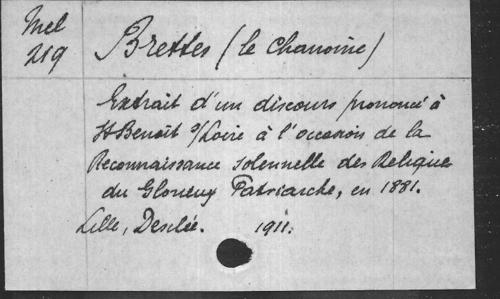 Mel
219
Brettes (le Chanoine)
Extrait d'un discours prononcé à
St Benoît s/Loire à l'occasion de la
Reconnaissance solennelle des Reliques
du Glorieux Patriarche, en 1881.
Lille, Desclée. 1911.